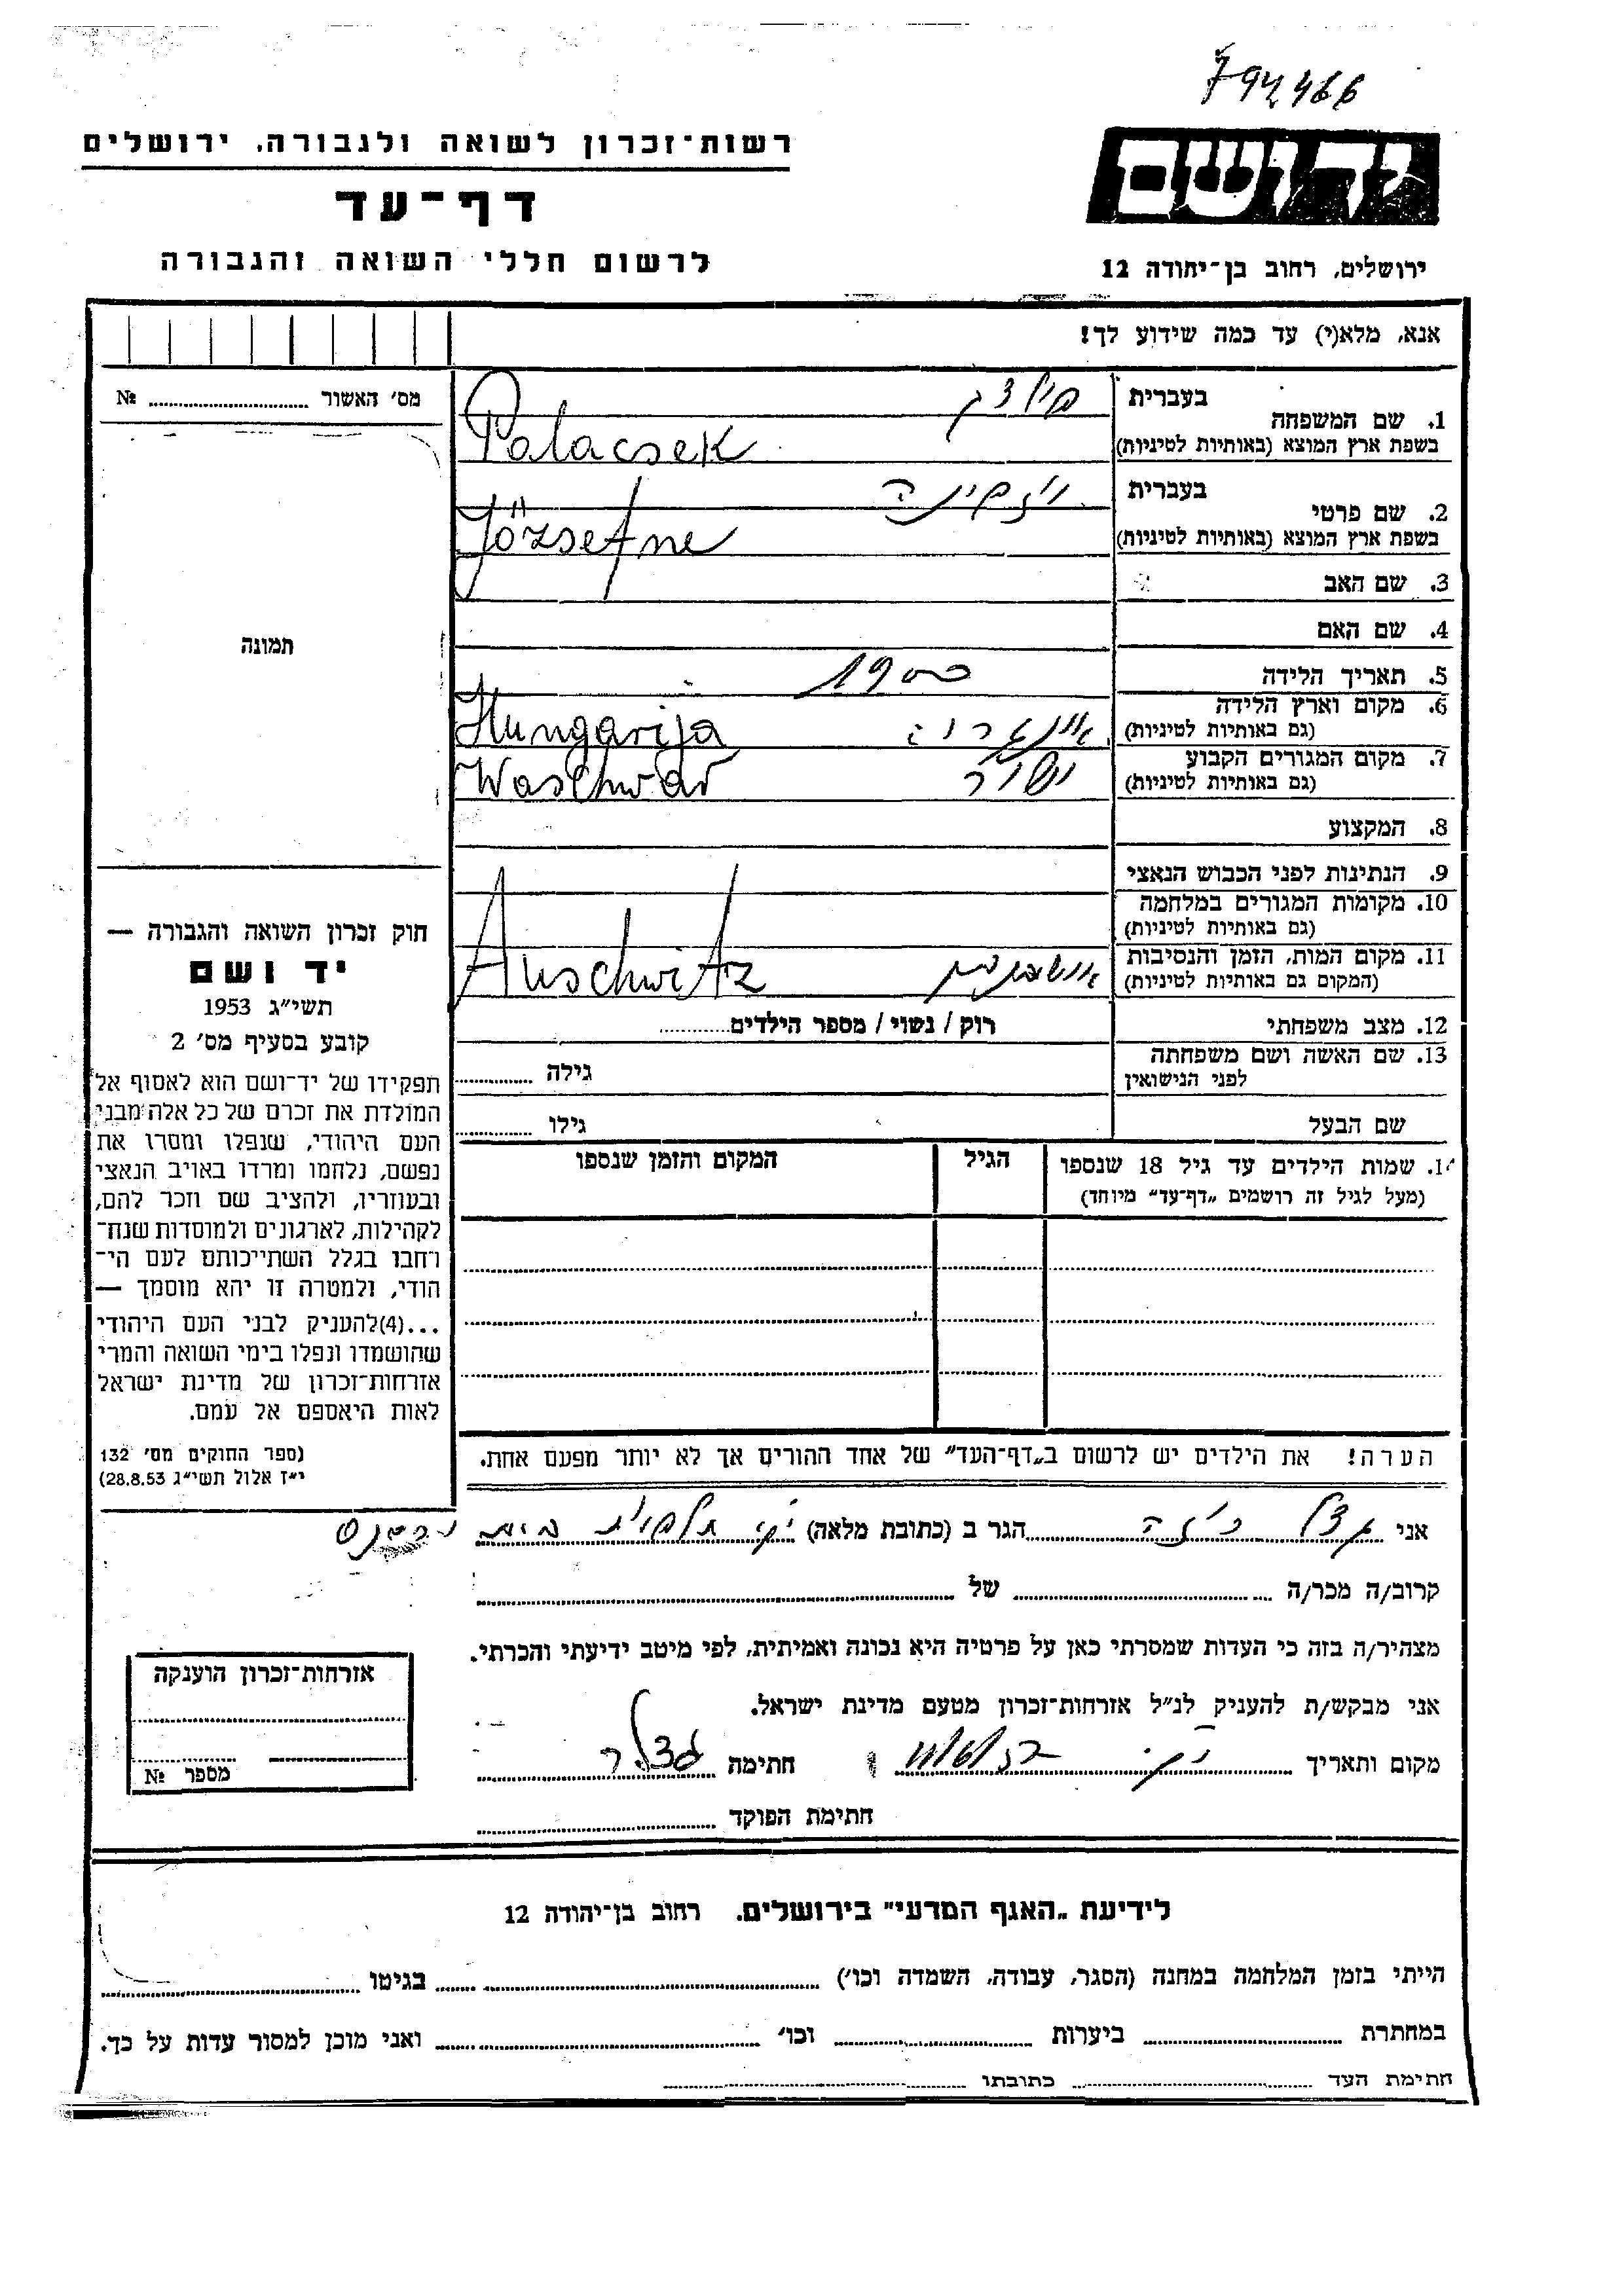 794466
רשות־זכרון לשואה ולגבורה, ירושלים
דף־עד
לרשום חללי השואה והגבורה
יד ושם
ירושלים, רחוב בן־יהודה 12
אנא, מלא(י) עד כמה שידוע לך!
מס׳ האשור № ........
1. שם המשפחה
בעברית
בשפת ארץ המוצא (באותיות לטיניות) Palacsek
2. שם פרטי
בעברית
בשפת ארץ המוצא (באותיות לטיניות) Józsefne
3. שם האב
4. שם האם
תמונה
5. תאריך הלידה 1900
6. מקום וארץ הלידה
(גם באותיות לטיניות) Hungarija
7. מקום המגורים הקבוע
(גם באותיות לטיניות) Waschwar
8. המקצוע
9. הנתינות לפני הכבוש הנאצי
10. מקומות המגורים במלחמה
(גם באותיות לטיניות)
11. מקום המות, הזמן והנסיבות
(המקום גם באותיות לטיניות) אושוויץ Auschwitz
12. מצב משפחתי רוק / נשוי / מספר הילדים........
13. שם האשה ושם משפחתה
לפני הנישואין גילה ........
שם הבעל גילו ........
14. שמות הילדים עד גיל 18 שנספו
(מעל לגיל זה רושמים „דף־עד״ מיוחד)
הגיל
המקום והזמן שנספו
חוק זכרון השואה והגבורה —
יד ושם
תשי״ג 1953
קובע בסעיף מס׳ 2
תפקידו של יד־ושם הוא לאסוף אל
המולדת את זכרם של כל אלה מבני
העם היהודי, שנפלו ומסרו את
נפשם, נלחמו ומרדו באויב הנאצי
ובעוזריו, ולהציב שם וזכר להם,
לקהילות, לארגונים ולמוסדות שנח־
רחבו בגלל השתייכותם לעם הי־
הודי, ולמטרה זו יהא מוסמך —
...(4)להעניק לבני העם היהודי
שהושמדו ונפלו בימי השואה והמרי
אזרחות־זכרון של מדינת ישראל
לאות היאספם אל עמם.
(ספר החוקים מס׳ 132
י״ז אלול תשי״ג 28.8.53)
הערה! את הילדים יש לרשום ב„דף־העד״ של אחד ההורים אך לא יותר מפעם אחת.
אני ........ הגר ב (כתובת מלאה) ........
קרוב/ה מכר/ה ........ של ........
מצהיר/ה בזה כי העדות שמסרתי כאן על פרטיה היא נכונה ואמיתית, לפי מיטב ידיעתי והכרתי.
אני מבקש/ת להעניק לנ״ל אזרחות־זכרון מטעם מדינת ישראל.
מקום ותאריך ........ חתימה ........
חתימת הפוקד ........
אזרחות־זכרון הוענקה
מספר №
לידיעת „האגף המדעי״ בירושלים. רחוב בן־יהודה 12
הייתי בזמן המלחמה במחנה (הסגר, עבודה, השמדה וכו׳) ........ בגיטו ........
במחתרת ........ ביערות ........ וכו׳ ........ ואני מוכן למסור עדות על כך.
חתימת העד ........ כתובתו ........